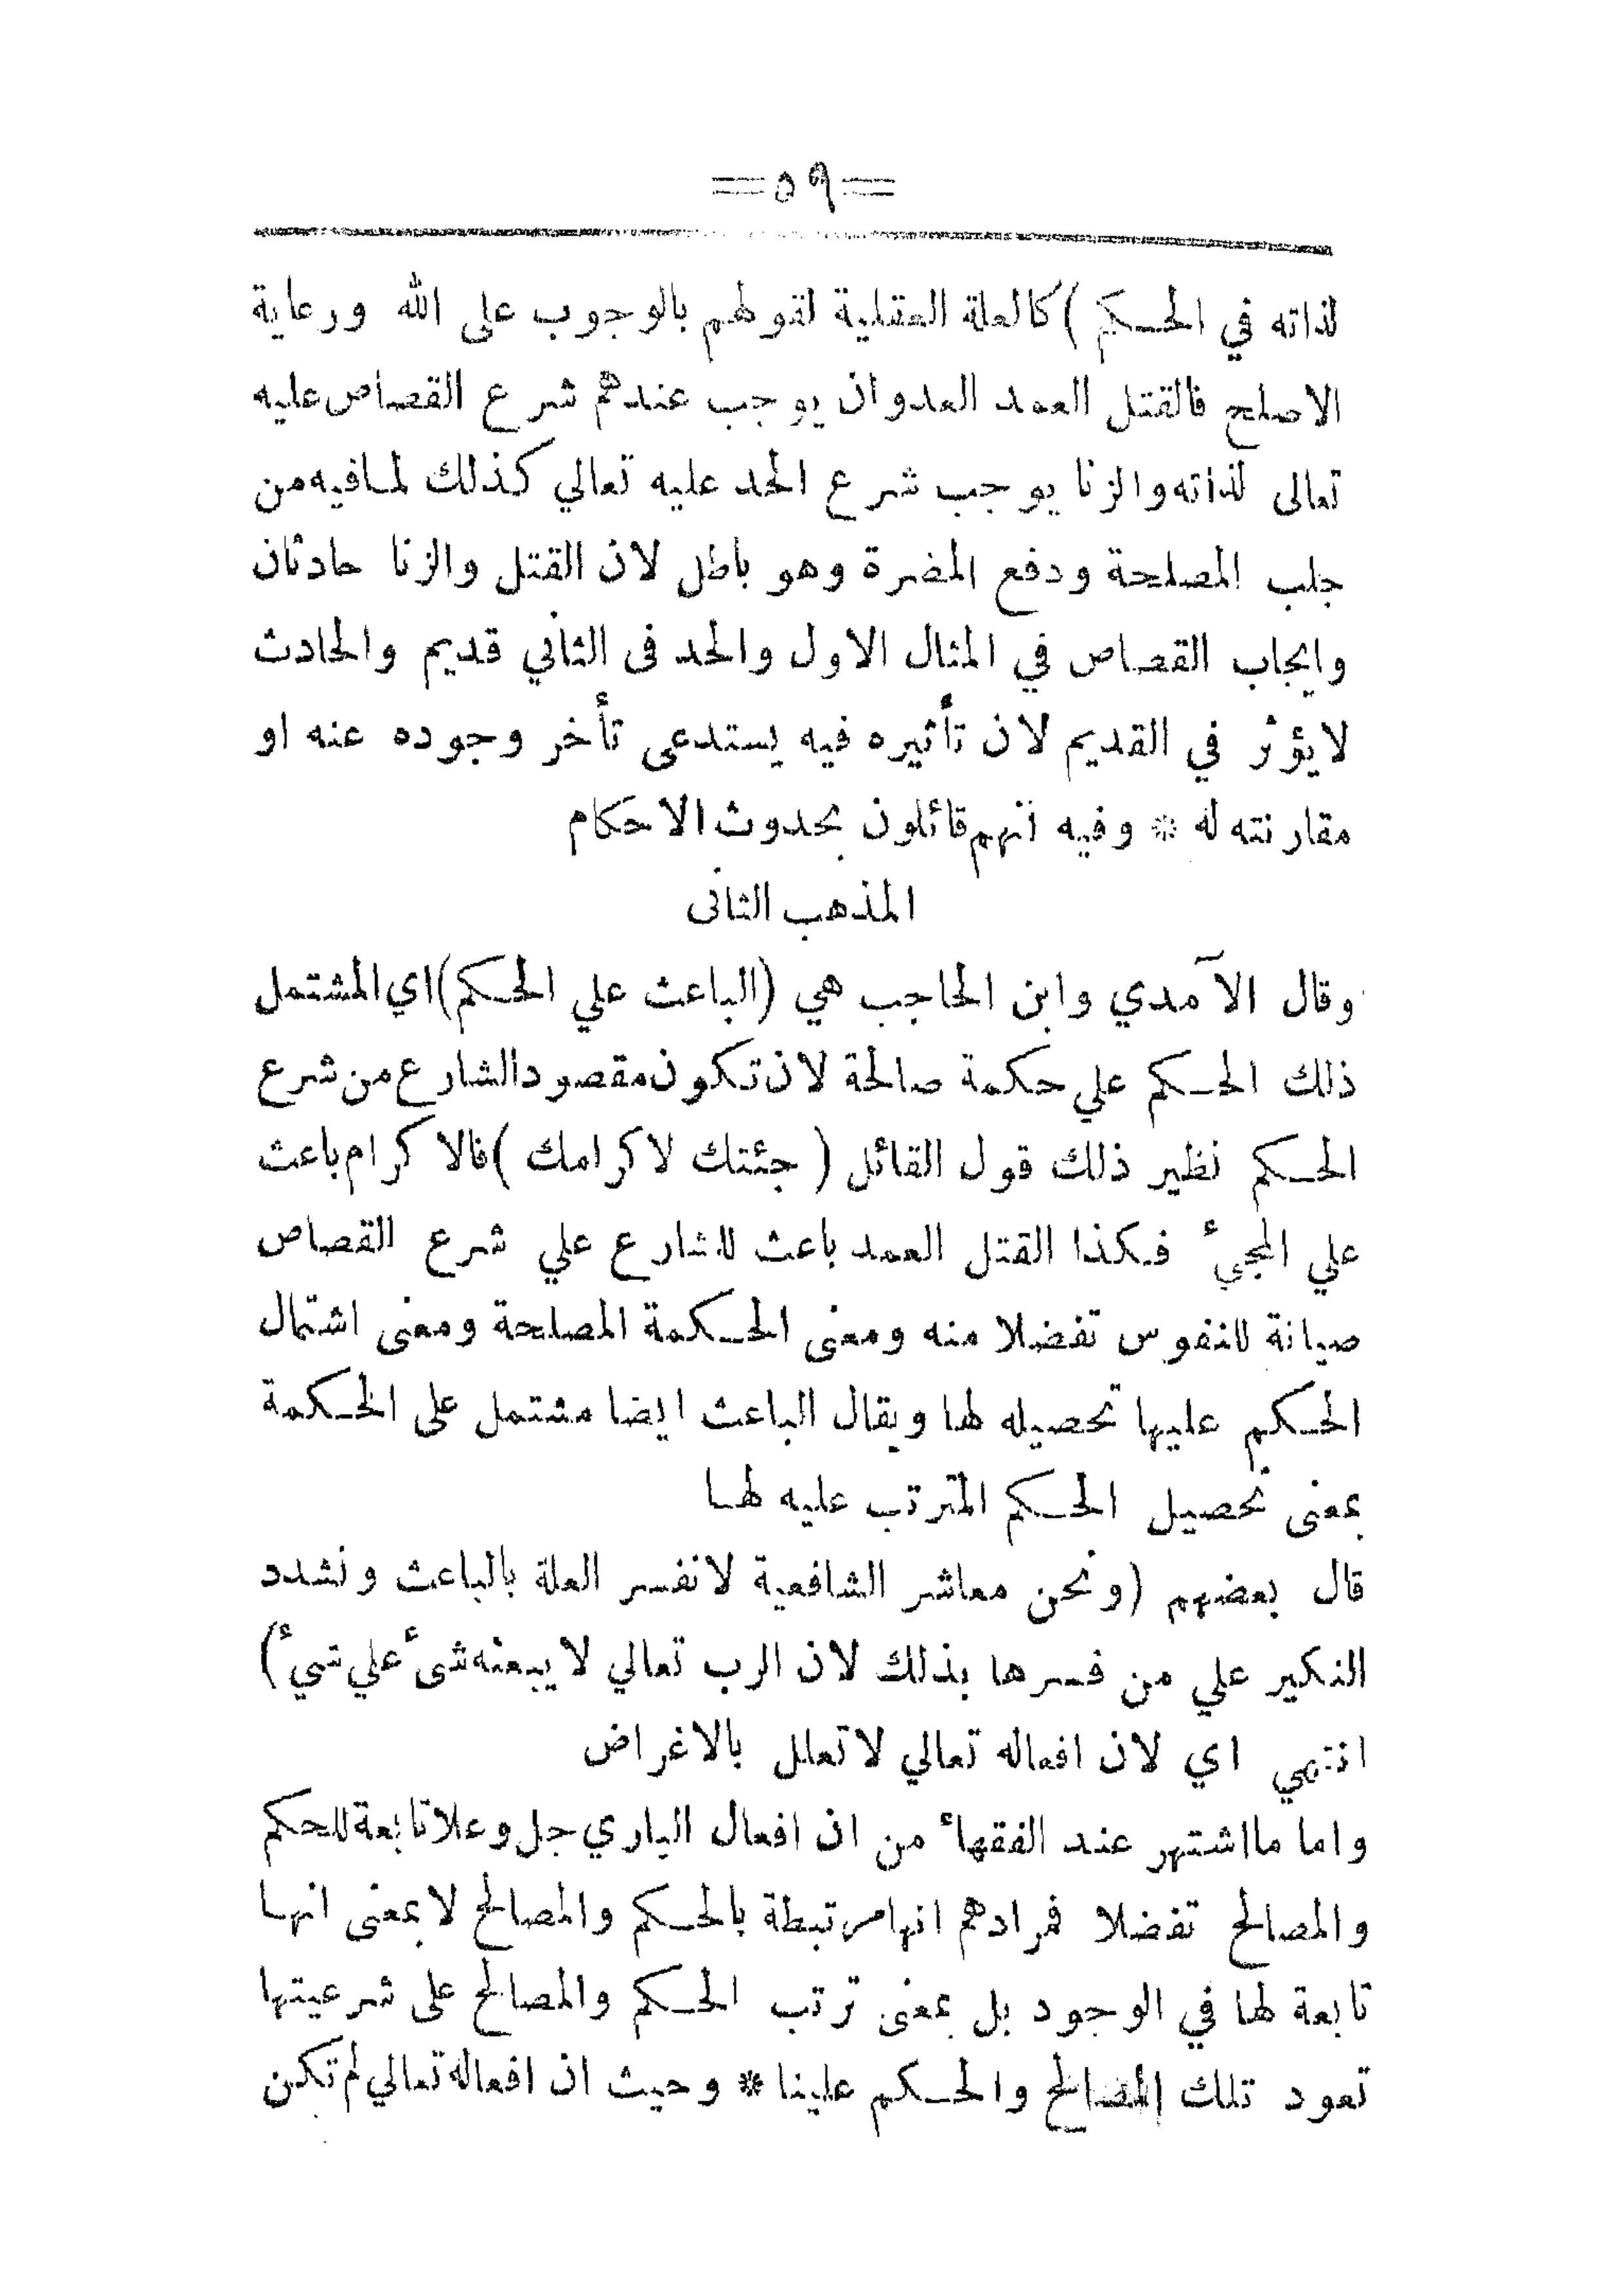 ==٥٩==
لذاته في الحكم ) كالعلة العقلية لقولهم بالوجوب على الله ورعاية
الاصلح فالقتل العمد العدوان يوجب عندهم شرع القصاص عليه
تعالى لذاته والزنا يوجب شرع الحد عليه تعالي كذلك لما فيه من
جلب المصلحة ودفع المضرة وهو باطل لان القتل والزنا حادثان
وايجاب القصاص في المثال الاول والحد فى الثاني قديم والحادث
لايؤثر في القديم لان تأثيره فيه يستدعى تأخر وجوده عنه او
مقارنته له * وفيه انهم قائلون بحدوث الاحكام
المذهب الثانى
وقال الآمدي وابن الحاجب هي (الباعث علي الحكم) اي المشتمل
ذلك الحكم علي حكمة صالحة لان تكون مقصود الشارع من شرع
الحكم نظير ذلك قول القائل ( جئتك لاكرامك ) فالاكرام باعث
علي المجيء فكذا القتل العمد باعث للشارع علي شرع القصاص
صيانة للنفوس تفضلا منه ومعنى الحكمة المصلحة ومعنى اشتمال
الحكم عليها تحصيله لها ويقال الباعث ايضا مشتمل على الحكمة
بمعنى تحصيل الحكم المترتب عليه لها
قال بعضهم (ونحن معاشر الشافعية لانفسر العلة بالباعث ونشدد
النكير علي من فسرها بذلك لان الرب تعالي لا يبعثه شىء علي شيء)
انتهي اي لان افعاله تعالي لاتعلل بالاغراض
واما ما اشتهر عند الفقهاء من ان افعال الباري جل وعلا تابعة للحكم
والمصالح تفضلا فمرادهم انها مرتبطة بالحكم والمصالح لابمعنى انها
تابعة لها في الوجود بل بمعنى ترتب الحكم والمصالح على شرعيتها
تعود تلك المصالح والحكم علينا * وحيث ان افعاله تعالي لم تكن